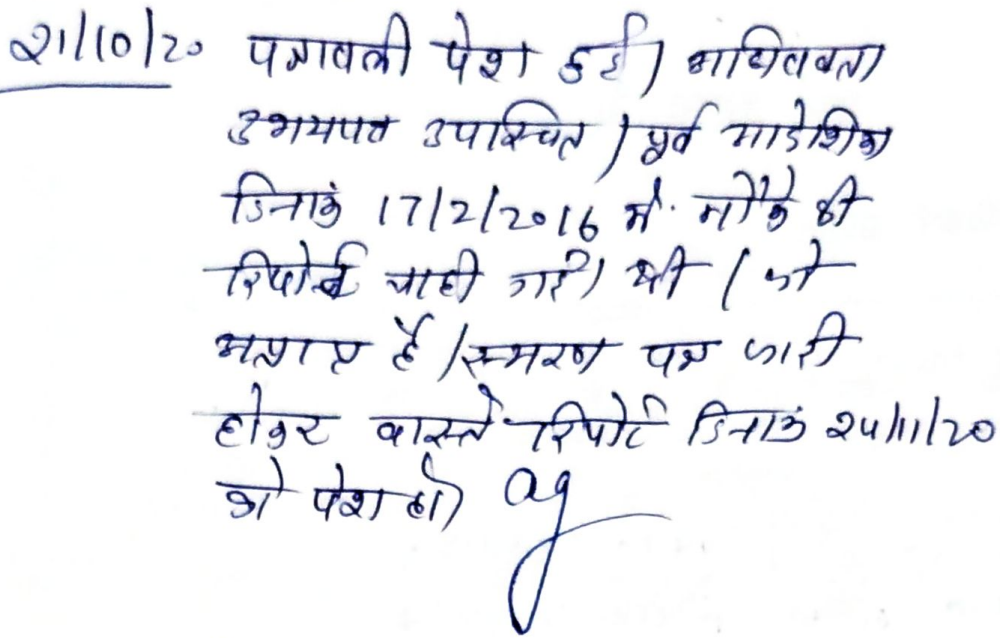 21/10/20 पत्रावली पेश हुई। अधिवक्ता
उभयपक्ष उपस्थित। पूर्व आदेशिका
दिनांक 17/2/2016 में मौके की
रिपोर्ट चाही गई थी। जो
अप्राप्त है। स्मरण पत्र जारी
होकर वास्ते रिपोर्ट दिनांक 24/11/20
को पेश हो।